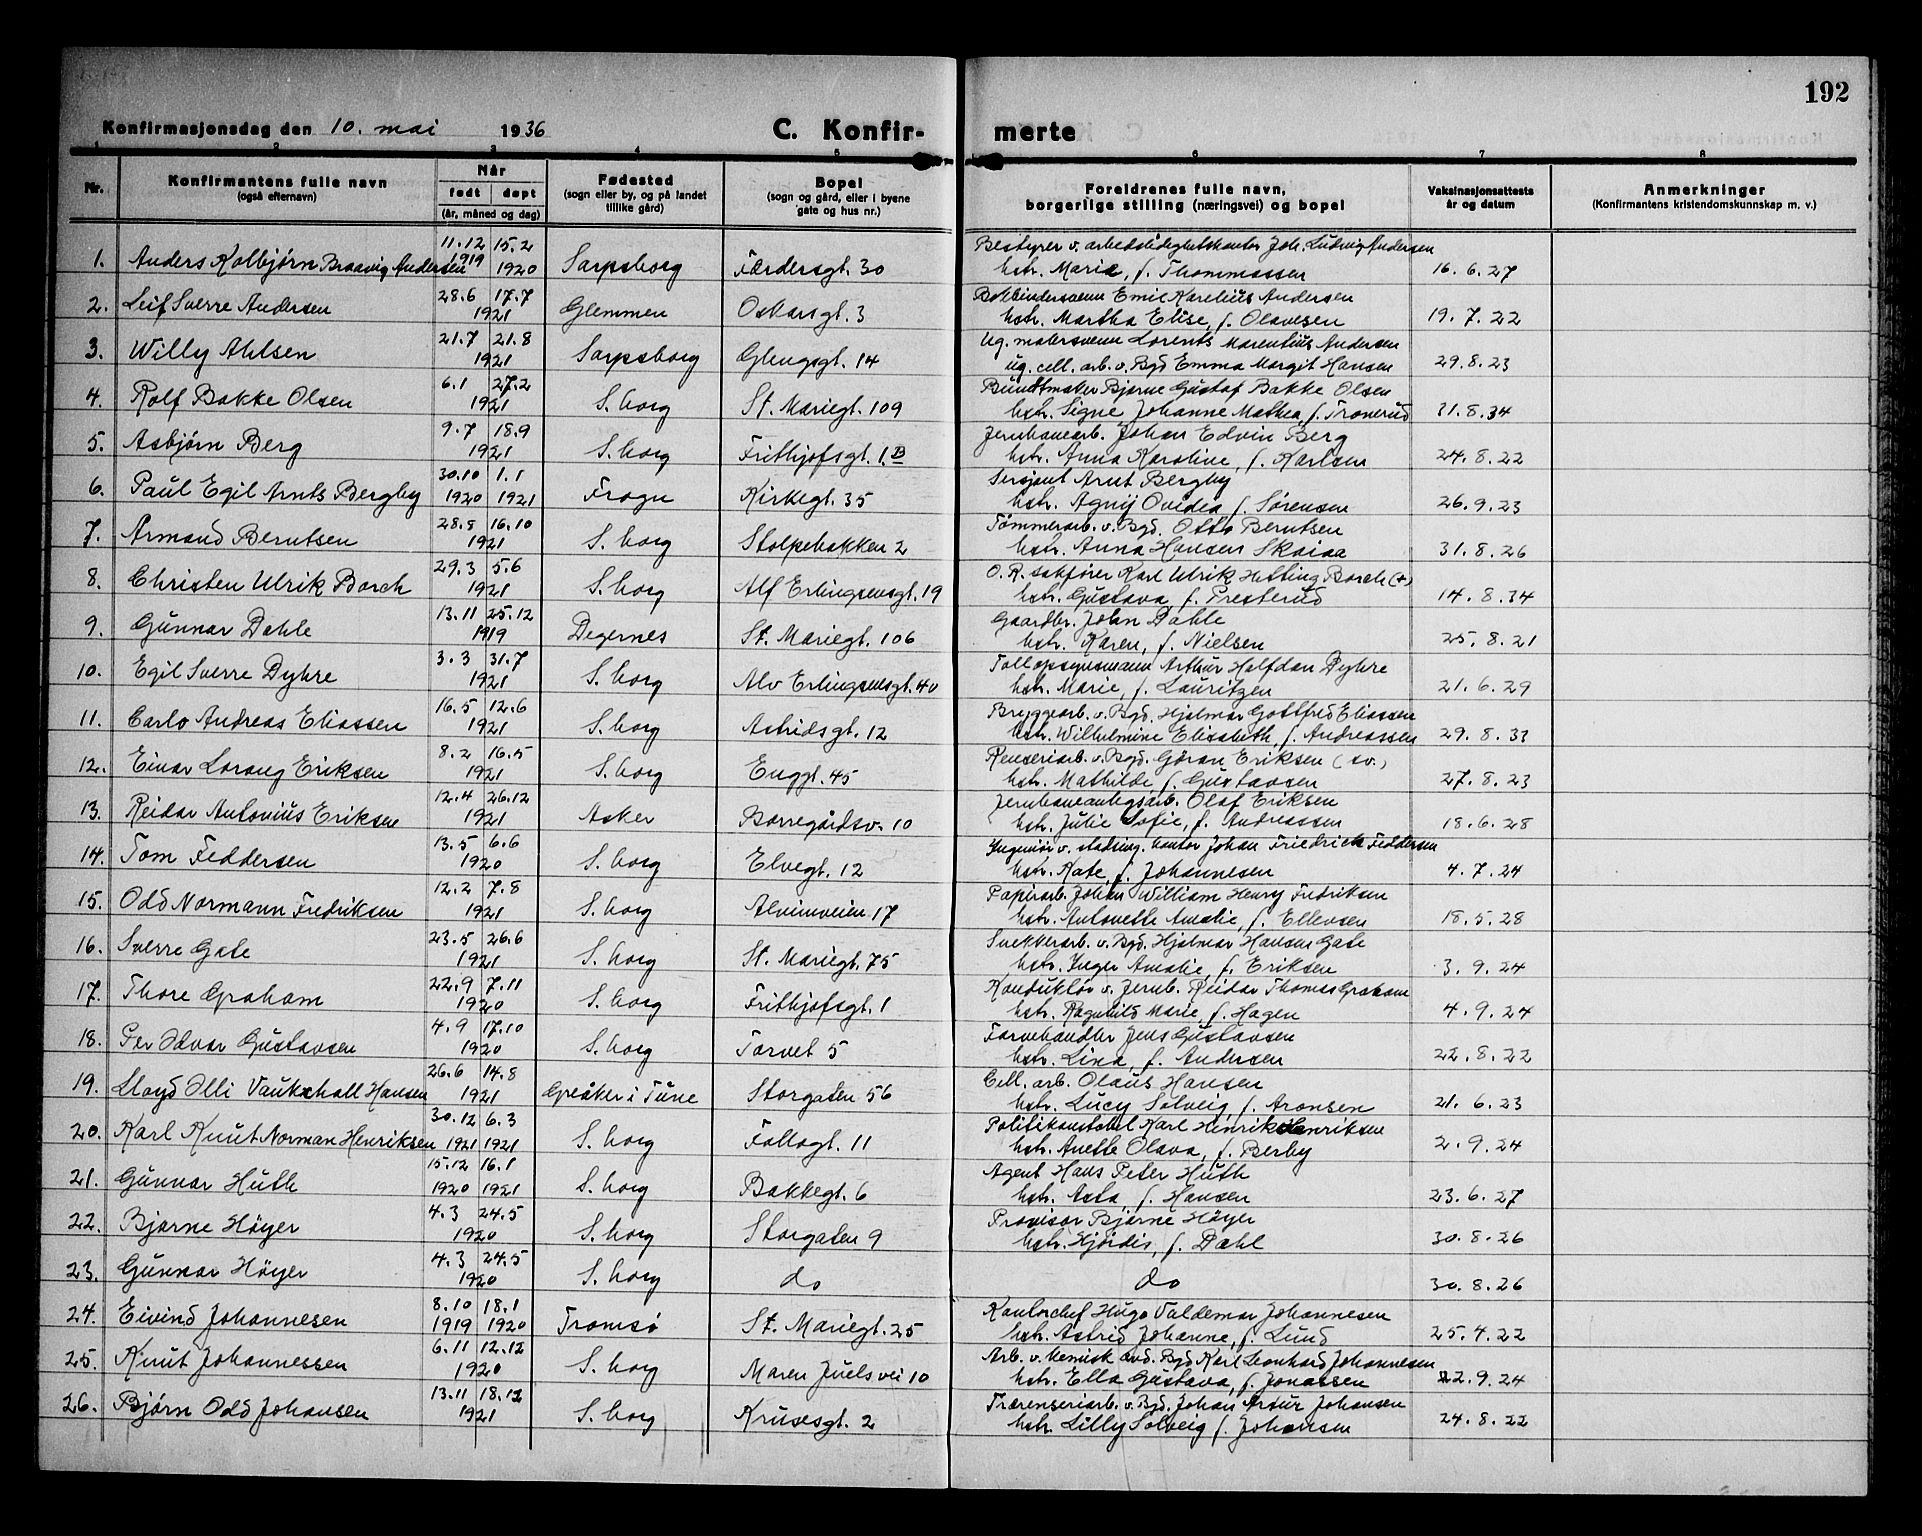 192
Konfirmasjonsdag den 10. mai 1936
C. Konfir-
merte
1 2 3 4 5 6 7 8
Nr.
Konfirmantens fulle navn
(også efternavn)
Når
født døpt
(år, måned og dag)
Fødested
(sogn eller by, og på landet
tillike gård)
Bopel
(sogn og gård, eller i byene
gate og hus nr.)
Foreldrenes fulle navn,
borgerlige stilling (næringsvei) og bopel
Vaksinasjonsattests
år og datum
Anmerkninger
(Konfirmantens kristendomskunnskap m. v.)
1. Anders Kolbjørn Braavig Andersen 11.12 1919 15.2 1920 Sarpsborg Færdersgt. 30 Bestyrer v. arbeidsledighetskontor Joh. Ludvig Andersen
hstr. Marie, f. Thommassen 16.6.27
2. Leif Sverre Andersen 28.6 17.7 1921 Glemmen Oskarsgt. 3 Bokbindersvenn Emil Karelius Andersen
hstr. Martha Elise, f. Olavesen 19.7.22
3. Willy Ahlsen 21.7 21.8 1921 Sarpsborg Glengsgt. 14 Ug. malersvenn Lorents Marentius Andersen
ug. cell. arb. v. Bgd Emma Margit Hansen 29.8.23
4. Rolf Bakke Olsen 6.1 27.2 1921 S.borg St. Mariegt. 109 Buntmaker Bjarne Gustaf Bakke Olsen
hstr. Signe Johanne Mathea, f. Tronerud 31.8.34
5. Asbjørn Berg 9.7 18.9 1921 S.borg Frithjofsgt. 1.B Jernbanearb. Johan Edvin Berg
hstr. Anna Karoline, f. Karlsen 24.8.22
6. Paul Egil Arnts Bergby 30.10 1920 1.1 1921 Frogn Kirkegt. 35 Sersjant Arnt Bergby
hstr. Agnij Ovidea f. Sørensen 26.9.23
7. Armand Berntsen 28.8 16.10 1921 S.borg Stolpebakken 2 Tømmerarb. v. Bgd. Otto Berntsen
hstr. Anna Hansen Skaiaa 31.8.26
8. Christen Ulrik Borch 29.3 5.6 1921 S.borg Alf Erlingsensgt. 19 O. R. sakfører Karl Ulrik Hetting Borch (+)
hstr. Gustava f. Presterud 14.8.34
9. Gunnar Dahle 13.11 25.12 1919 Degernes St. Mariegt. 106 Gaardbr. John Dahle
hstr. Karen, f. Nielsen 25.8.21
10. Egil Sverre Dyhre 3.3 31.7 1921 S.borg Alv Erlingsensgt. 40 Tollopsynsmann Arthur Halfdan Dyhre
hstr. Marie, f. Lauritzen 21.6.29
11. Carlo Andreas Eliassen 16.5 12.6 1921 S.borg Astridsgt. 12 Bryggearb. v. Bgd. Hjalmar Gottfred Eliassen
hstr. Wilhelmine Elisabeth f. Andreassen 29.8.33
12. Einar Lorang Eriksen 8.2 16.5 1921 S.borg Enggt. 45 Renseriarb. v. Bgd. Göran Eriksen (sv.)
hstr. Mathilde f. Gustavsen 27.8.23
13. Reidar Antonius Eriksen 12.4 26.12 1921 Asker Borregårdsv. 10 Jernbaneanlegsarb. Olaf Eriksen
hstr. Julie Sofie, f. Andreassen 18.6.28
14. Tom Feddersen 13.5 6.6 1920 S.borg Elvegt. 12 Ingeniør v. stadsing. kontor Johan Friedrich Feddersen
hstr. Kate, f. Johannesen 4.7.24
15. Odd Normann Fredriksen 12.2 7.8 1921 S.borg Alvimveien 17 Papirarb. Johan William Henry Fredriksen
hstr. Antonette Amalie, f. Ellevsen 18.5.28
16. Sverre Gate 23.5 26.6 1921 S.borg St. Mariegt. 75 Snekkerarb. v. Bgd. Hjalmar Hansen Gate
hstr. Inger Amalie, f. Eriksen 3.9.24
17. Thore Graham 22.9 7.11 1920 S.borg Frithjofsgt. 1 Konduktør v. Jernb. Reidar Thomas Graham
hstr. Ragnhild Marie, f. Hagen 4.9.24
18. Per Odvar Gustavsen 4.9 17.10 1920 S.borg Torvet 5 Farvehandler Jens Gustavsen
hstr. Lina, f. Andersen 22.8.22
19. Lloyd Olli Vaukshall Hansen 26.6 14.8 1921 Greåker i Tune Storgaten 56 Cell. arb. Olaus Hansen
hstr. Lucy Solveig, f. Aronsen 21.6.23
20. Karl Knut Norman Henriksen 30.12 1921 6.3 1921 S.borg Follogt. 11 Politikonstabel Karl Henrik Henriksen
hstr. Anette Olava, f. Berby 2.9.24
21. Gunnar Huth 15.12 1920 16.1 1921 S.borg Bakkegt. 6 Agent Hans Peter Huth
hstr. Asta, f. Hansen 23.6.27
22. Bjarne Høyer 4.3 24.5 1920 S.borg Storgaten 9 Provisor Bjarne Høyer
hstr. Hjørdis, f. Dahl 30.8.26
23. Gunnar Høyer 4.3 24.5 1920 S.borg do do 30.8.26
24. Eivind Johannesen 8.10 1919 18.1 1920 Tromsø St. Mariegt. 25 Kontorchef Hugo Valdemar Johannesen
hstr. Astrid Johanne, f. Lund 25.4.22
25. Knut Johannessen 6.11 12.12 1920 S.borg Maren Juels vei 10 Arb. v. kemisk avd. Bgd Karl Leonhard Johannesen
hstr. Ella Gustava, f. Jonassen 22.9.24
26. Bjørn Odd Johansen 13.11 18.12 1921 S.borg Krusesgt. 2 Trærenseriarb. v. Bgd. Johan Artur Johansen
hstr. Lilly Solveig f. Johansen 24.8.22